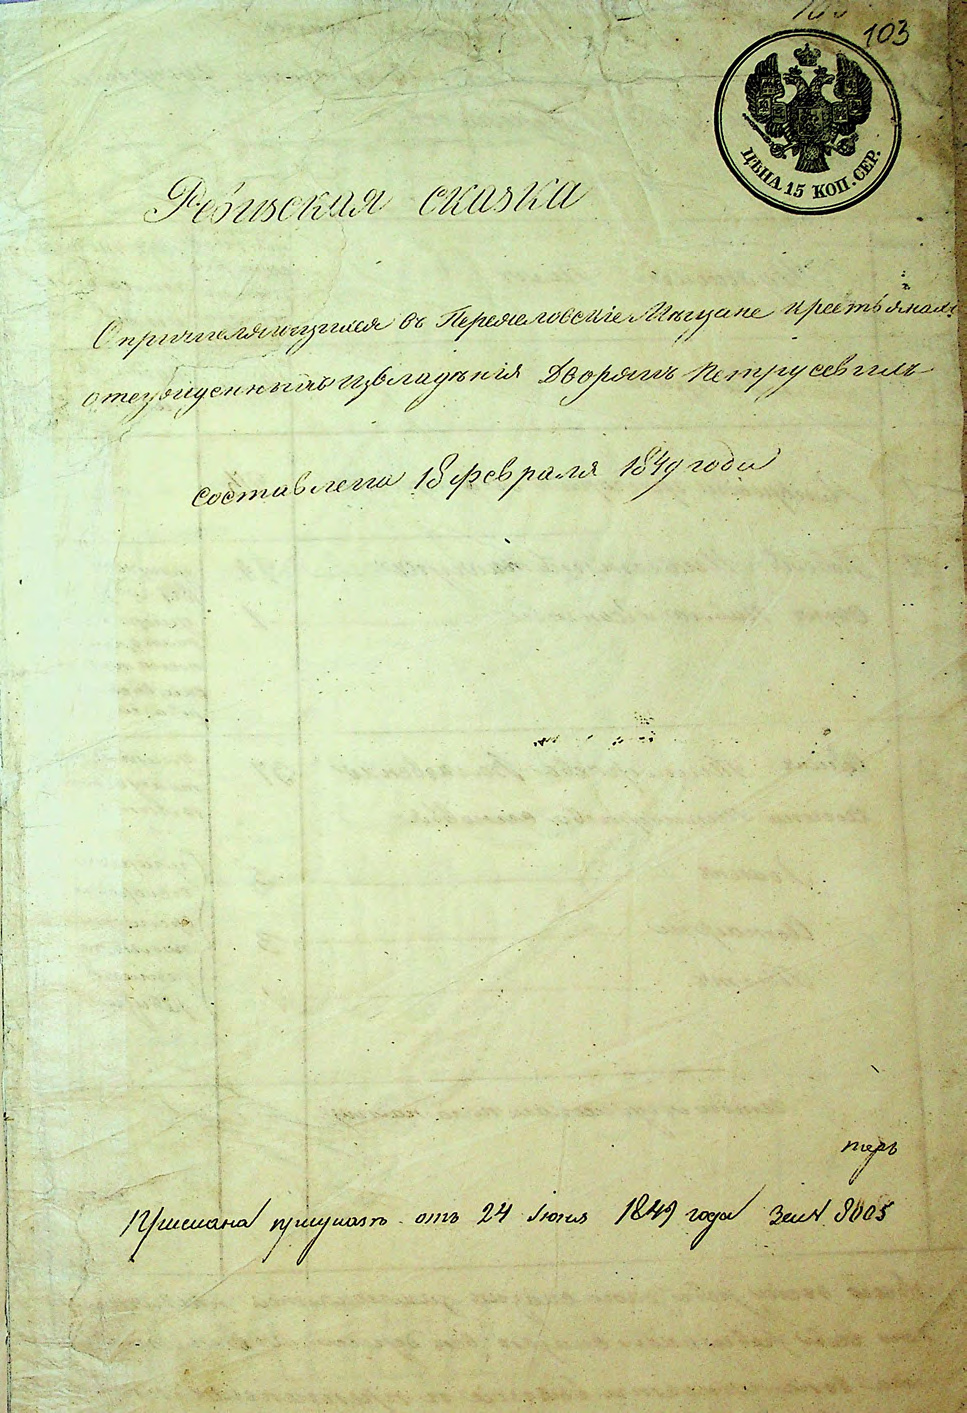 103
ЦѢНА 15 КОП. СЕР.
Ревизская сказка
О причисляющихся въ Переяславскіе Мещане Крестьянахъ
отпущенныхъ изъ владѣнія Дворянъ Петрусевичъ
составлена 18 февраля 1849 года
Писана приказъ отъ 24 Іюня 1849 года за № 8005